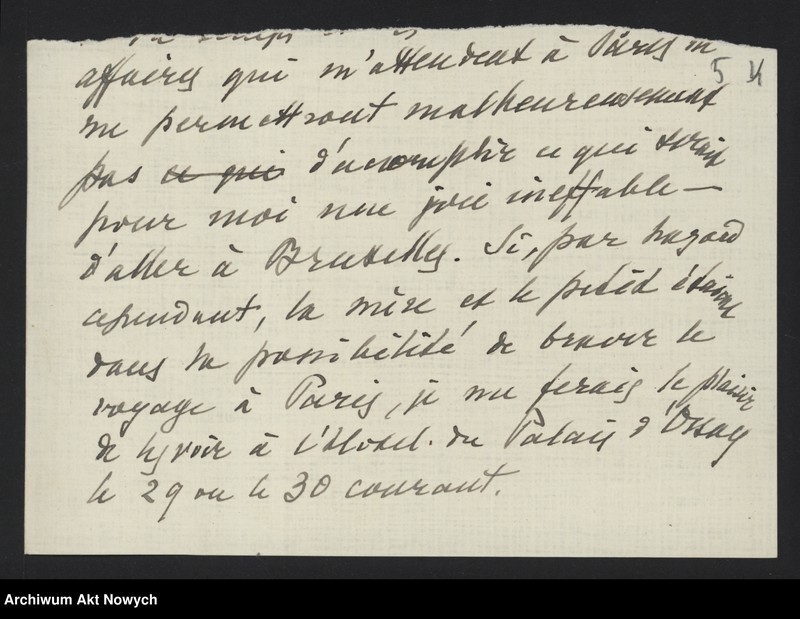 affaires qui m'attendent à Paris
5
ne permettront malheureusement
pas ce qui d'accomplir ce qui serait
pour moi une joie ineffable —
d'aller à Bruxelles. Si, par hazard
cependant, la mère et le étaient
dans la possibilité de braver le
voyage à Paris, je me ferais le plaisir
de les voir à l'Hotel du Palais d'Orsay
le 29 ou le 30 courant.
Archiwum Akt Nowych